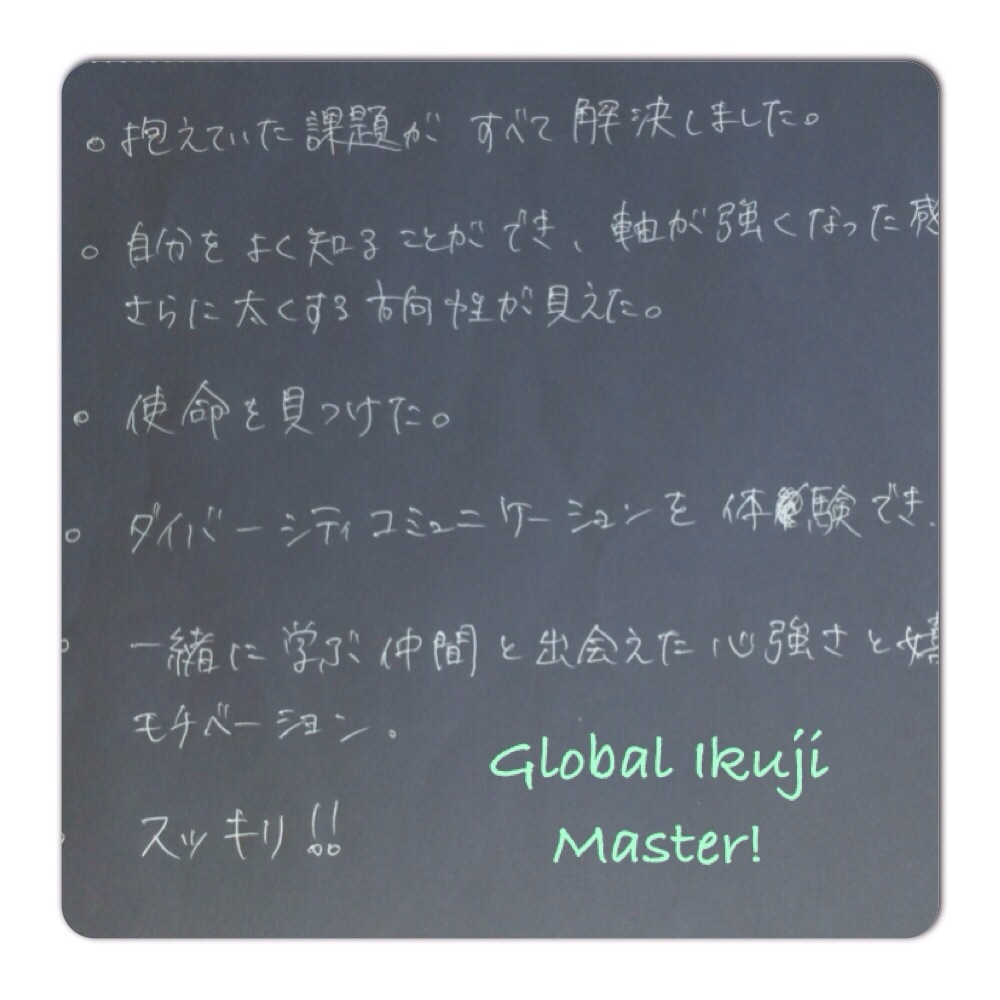 ○抱えていた課題が すべて解決しました。
○自分をよく知ることができ、軸が強くなった感
さらに太くする方向性が見えた。
○使命を見つけた。
○ダイバーシティコミュニケーションを体験でき、
○一緒に学ぶ仲間と出会えた心強さと嬉
モチベーション。
スッキリ!!
Global Ikuji
Master!